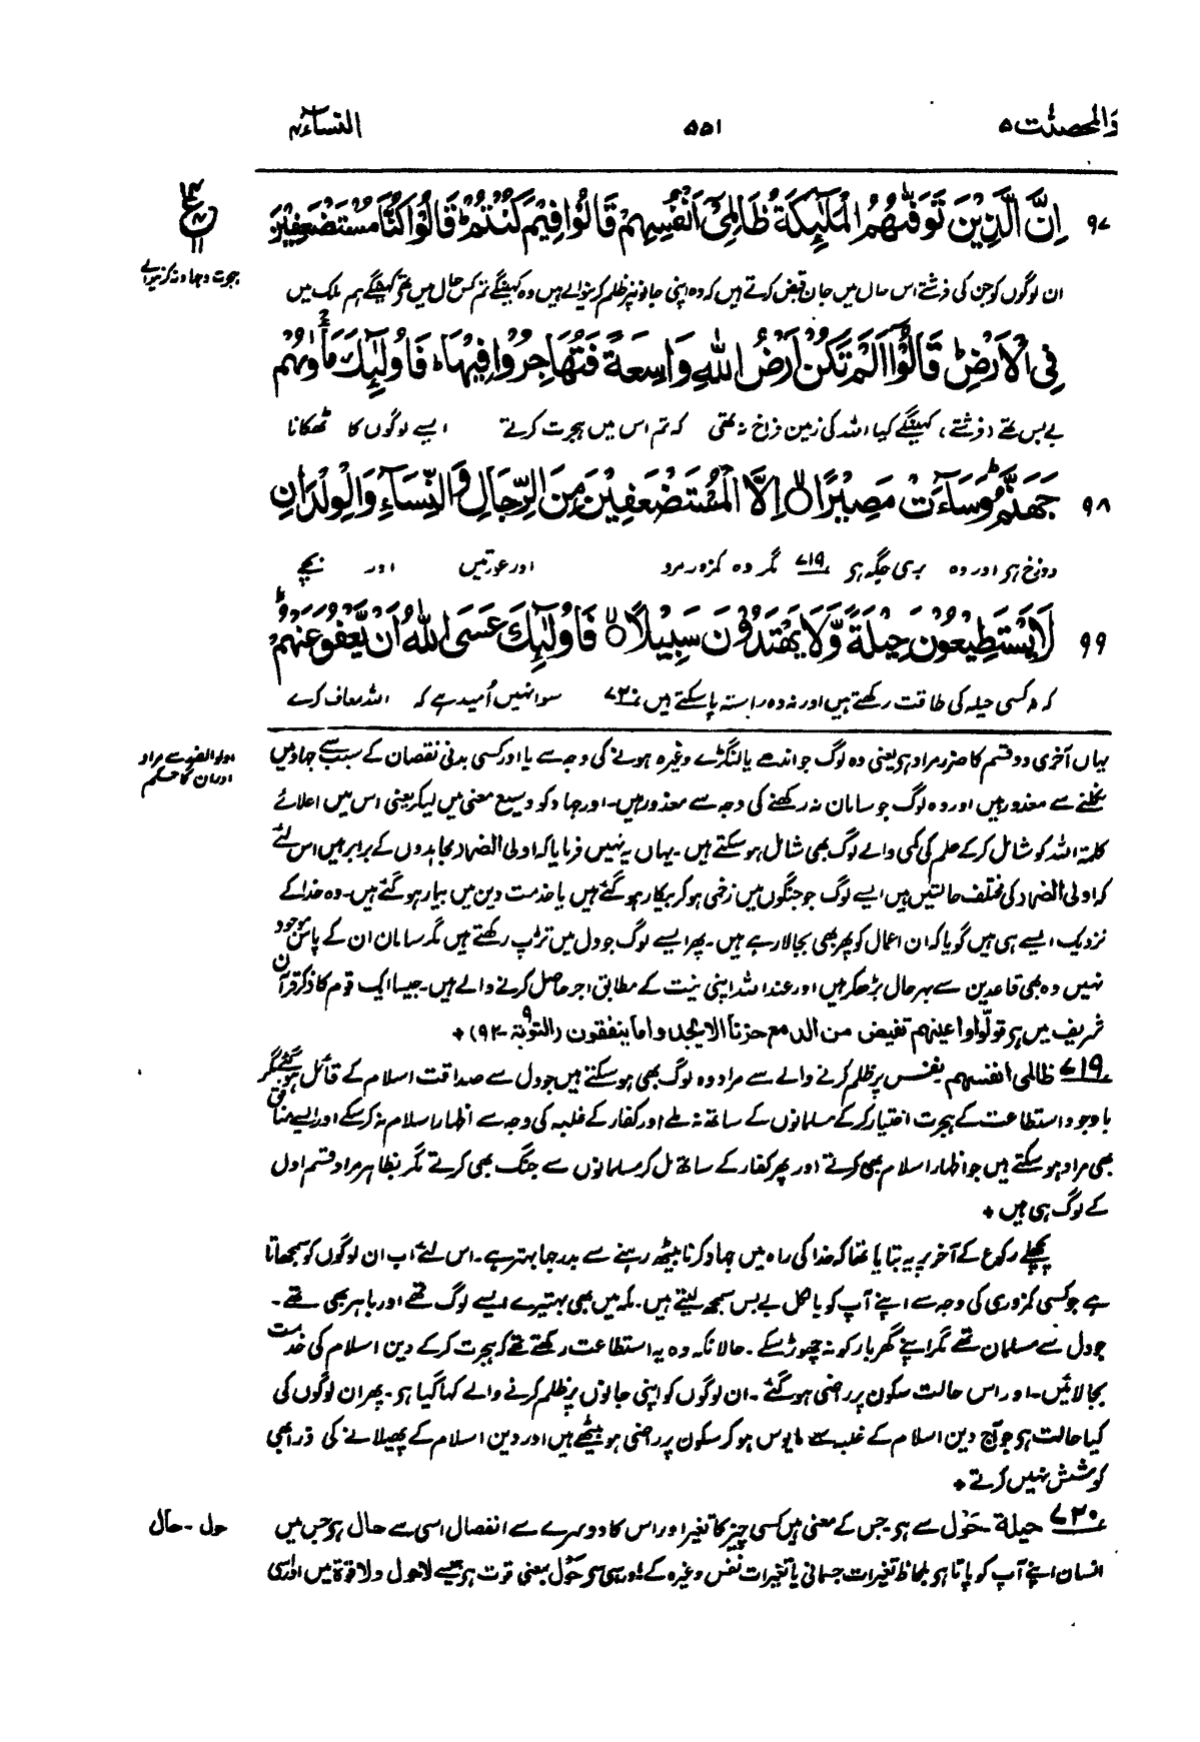 والمحصنٰت ۵
۵۵۱
النساء ۴
۹۷ اِنَّ الَّذِيْنَ تَوَفّٰىهُمُ الْمَلٰٓئِكَةُ ظَالِمِيْٓ اَنْفُسِهِمْ قَالُوْا فِيْمَ كُنْتُمْ ؕ قَالُوْا كُنَّا مُسْتَضْعَفِيْنَ
ان لوگوں کو جن کی فرشتے اس حال میں جان قبض کرتے ہیں کہ وہ اپنی جانوں پر ظلم کرنیوالے ہیں وہ کہینگے تم کس حال میں تھے کہینگے ہم ملک میں
فِي الْاَرْضِ ؕ قَالُوْٓا اَلَمْ تَكُنْ اَرْضُ اللّٰهِ وَاسِعَةً فَتُهَاجِرُوْا فِيْهَا ؕ فَاُولٰٓئِكَ مَاْوٰىهُمْ
بے بس تھے (فرشتے) کہینگے کیا اللہ کی زمین فراخ نہ تھی کہ تم اس میں ہجرت کرتے ایسے لوگوں کا ٹھکانا
۹۸ جَهَنَّمُ ؕ وَسَآءَتْ مَصِيْرًا ۙ اِلَّا الْمُسْتَضْعَفِيْنَ مِنَ الرِّجَالِ وَالنِّسَآءِ وَالْوِلْدَانِ
دوزخ ہو اور وہ بری جگہ ہو ۷۱۹ مگر وہ کمزور مرد اور عورتیں اور بچے
۹۹ لَا يَسْتَطِيْعُوْنَ حِيْلَةً وَّلَا يَهْتَدُوْنَ سَبِيْلًا ۙ فَاُولٰٓئِكَ عَسَى اللّٰهُ اَنْ يَّعْفُوَ عَنْهُمْ ؕ
کہ نہ کسی حیلہ کی طاقت رکھتے ہیں اور نہ وہ راستہ پا سکتے ہیں ۷۲۰ سو انہیں اُمید ہے کہ اللہ معاف کرے
یہاں آخری دو قسم کا ضرر مراد ہو یعنی وہ لوگ جو اندھے یا لنگڑے وغیرہ ہونے کی وجہ سے یا اور کسی بدنی نقصان کے سبب سے جہاد میں
اولو الضرر سے مراد
اور ان کا حکم
نکلنے سے معذور ہیں اور وہ لوگ جو سامان نہ رکھنے کی وجہ سے معذور ہیں۔ اور جہاد کو وسیع معنی میں لیکر یعنی اس میں اعلائے
کلمۃ اللہ کو شامل کر کے علم کی کمی والے لوگ بھی شامل ہو سکتے ہیں۔ یہاں یہ نہیں فرمایا کہ اولی الضرر مجاہدوں کے برابر ہیں اس لئے
کہ اولی الضرر کی مختلف حالتیں ہیں ایسے لوگ جو جنگوں میں زخمی ہو کر بیکار ہو گئے ہیں یا خدمت دین میں بیمار ہو گئے ہیں۔ وہ خدا کے
نزدیک ایسے ہی ہیں گویا کہ ان اعمال کو پھر بھی بجا لا رہے ہیں۔ پھر ایسے لوگ جو دل میں تڑپ رکھتے ہیں مگر سامان ان کے پاس موجود
نہیں وہ بھی قاعدین سے بہرحال بڑھ کر ہیں اور عند اللہ اپنی نیت کے مطابق اجر حاصل کرنے والے ہیں۔ جیسا ایک قوم کا ذکر قرآن
شریف میں ہو تولوا واعینھم تفیض من الدمع حزنا الا یجدوا ما ینفقون (التوبۃ ۹-۹۲) +
۷۱۹ ظالمی انفسھم نفس پر ظلم کرنے والے سے مراد وہ لوگ بھی ہو سکتے ہیں جو دل سے صداقت اسلام کے قائل ہو گئے مگر
باوجود استطاعت کے ہجرت اختیار کر کے مسلمانوں کے ساتھ نہ ملے اور کفار کے غلبہ کی وجہ سے اظہار اسلام نہ کر سکے اور ایسے منافق
بھی مراد ہو سکتے ہیں جو اظہار اسلام بھی کرتے اور پھر کفار کے ساتھ مل کر مسلمانوں سے جنگ بھی کرتے مگر بظاہر مراد قسم اول
کے لوگ ہی ہیں +
پچھلے رکوع کے آخر پر یہ بتایا تھا کہ خدا کی راہ میں جہاد کرنا بیٹھ رہنے سے بدرجہا بہتر ہے۔ اس لئے اب ان لوگوں کو سمجھاتا
ہے جو کسی کمزوری کی وجہ سے اپنے آپ کو بالکل بے بس سمجھ لیتے ہیں۔ مکہ میں بھی بہتیرے ایسے لوگ تھے اور باہر بھی تھے۔
جو دل سے مسلمان تھے مگر اپنے گھر بار کو نہ چھوڑ سکے۔ حالانکہ وہ یہ استطاعت رکھتے تھے کہ ہجرت کر کے دین اسلام کی خدمت
بجا لائیں۔ اور اس حالت سکون پر رضی ہو گئے۔ ان لوگوں کو اپنی جانوں پر ظلم کرنے والے کہا گیا ہو۔ پھر ان لوگوں کی
کیا حالت ہو جو آج دین اسلام کے غلبہ سے مایوس ہو کر سکون پر رضی ہو بیٹھے ہیں اور دین اسلام کے پھیلانے کی ذرا بھی
کوشش نہیں کرتے +
۷۲۰ حیلۃ۔ حَوْل سے ہو جس کے معنی ہیں کسی چیز کا تغیر اور اس کا دوسرے سے انفصال اسی سے حال ہو جس میں
حول۔ حال
انسان اپنے آپ کو پاتا ہو بلحاظ تغیرات جسمانی یا تغیرات نفس وغیرہ کے اور یہی حَوْل بمعنی قوت ہو جیسے لاحول ولا قوۃ میں اور اسی